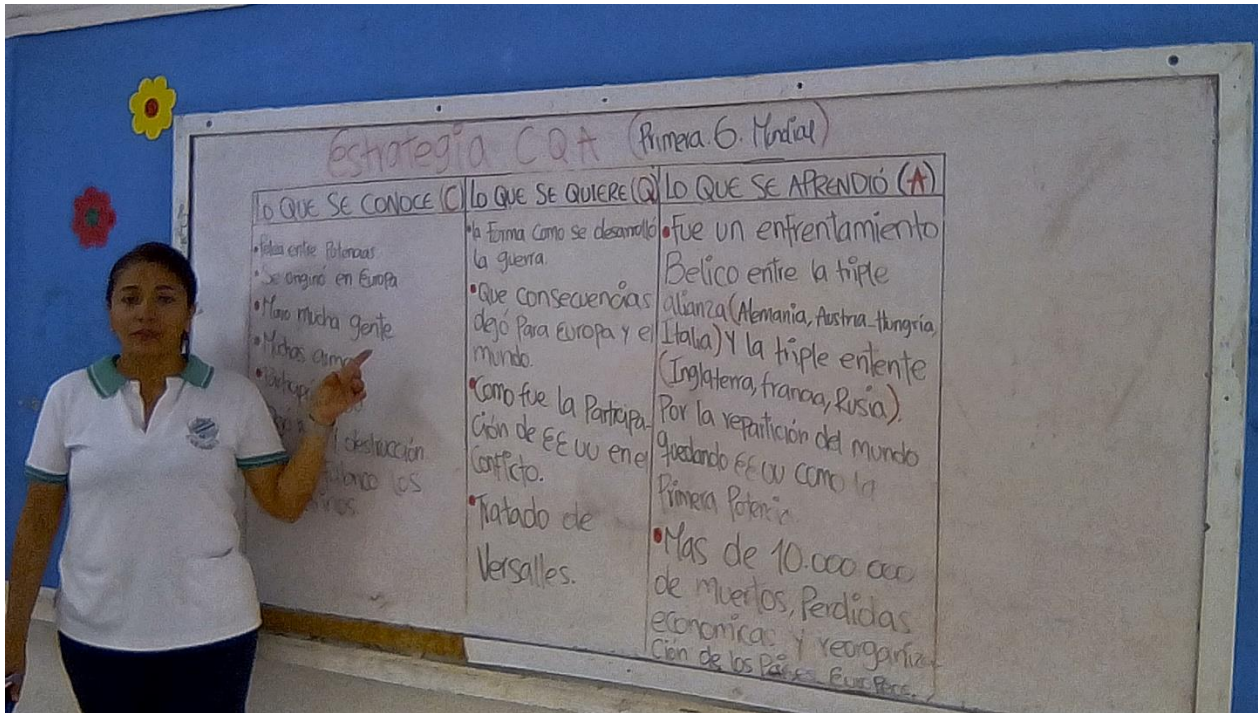 Estrategia CQA (Primera. G. Mundial)
LO QUE SE CONOCE (C)
• Pelea entre Potencias
• Se originó en Europa
• Murio mucha gente
• Muchas
•
destrucción
los
LO QUE SE QUIERE (Q)
• la forma como se desarrolló
la guerra.
• Que consecuencias
dejó Para Europa y el
mundo.
• Como fue la Participa-
ción de EE UU en el
conflicto.
• Tratado de
Versalles.
LO QUE SE APRENDIÓ (A)
• fue un enfrentamiento
Belico entre la triple
alianza (Alemania, Austria-Hungria,
Italia) Y la triple entente
(Inglaterra, francia, Rusia).
Por la repartición del mundo
quedando EE UU como la
Primera Potencia.
• Mas de 10.000 000
de muertos, Perdidas
economicas y reorganiza-
ción de los Países Europeos.